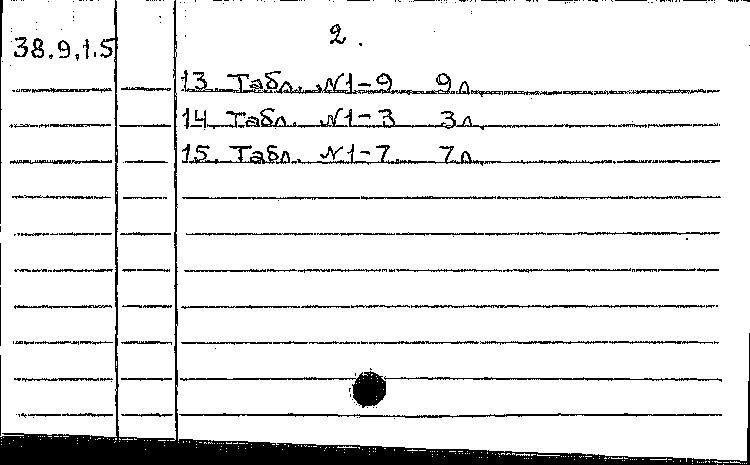 2.
38.9.1.5
13. Табл. №1-9 9л.
14. Табл. №1-3 3л.
15. Табл. №1-7 7л.